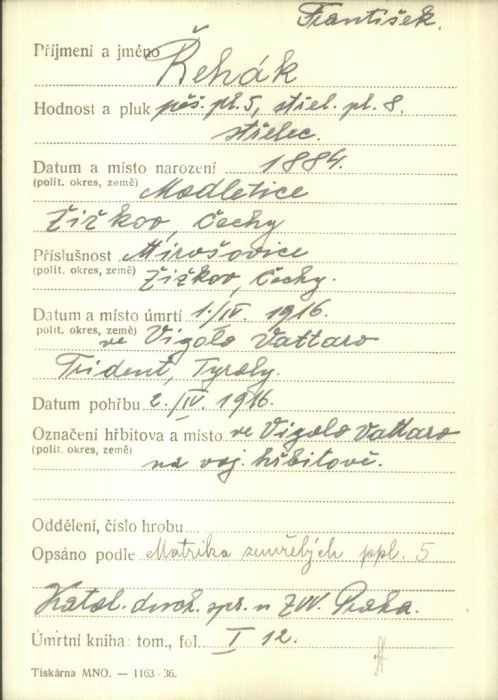 František.
Příjmení a jméno Řehák
Hodnost a pluk pěš. pl. 5, střel. pl. 8.
střelec.
Datum a místo narození 1884.
(polit. okres, země) Modletice
Žižkov, Čechy
Příslušnost Mirošovice
(polit. okres, země) Žižkov, Čechy.
Datum a místo úmrtí 1./IV. 1916.
polit. okres, země) ve Vigolo Vattaro
Trident, Tyroly.
Datum pohřbu 2./IV. 1916.
Označení hřbitova a místo ve Vigolo Vattaro
(polit. okres, země) na voj. hřbitově.
Oddělení, číslo hrobu
Opsáno podle Matrika zemřelých ppl. 5
Katol. duch. spr. u ZVV. Praha.
Úmrtní kniha: tom., fol. I 12.
Tiskárna MNO. — 1163-36.